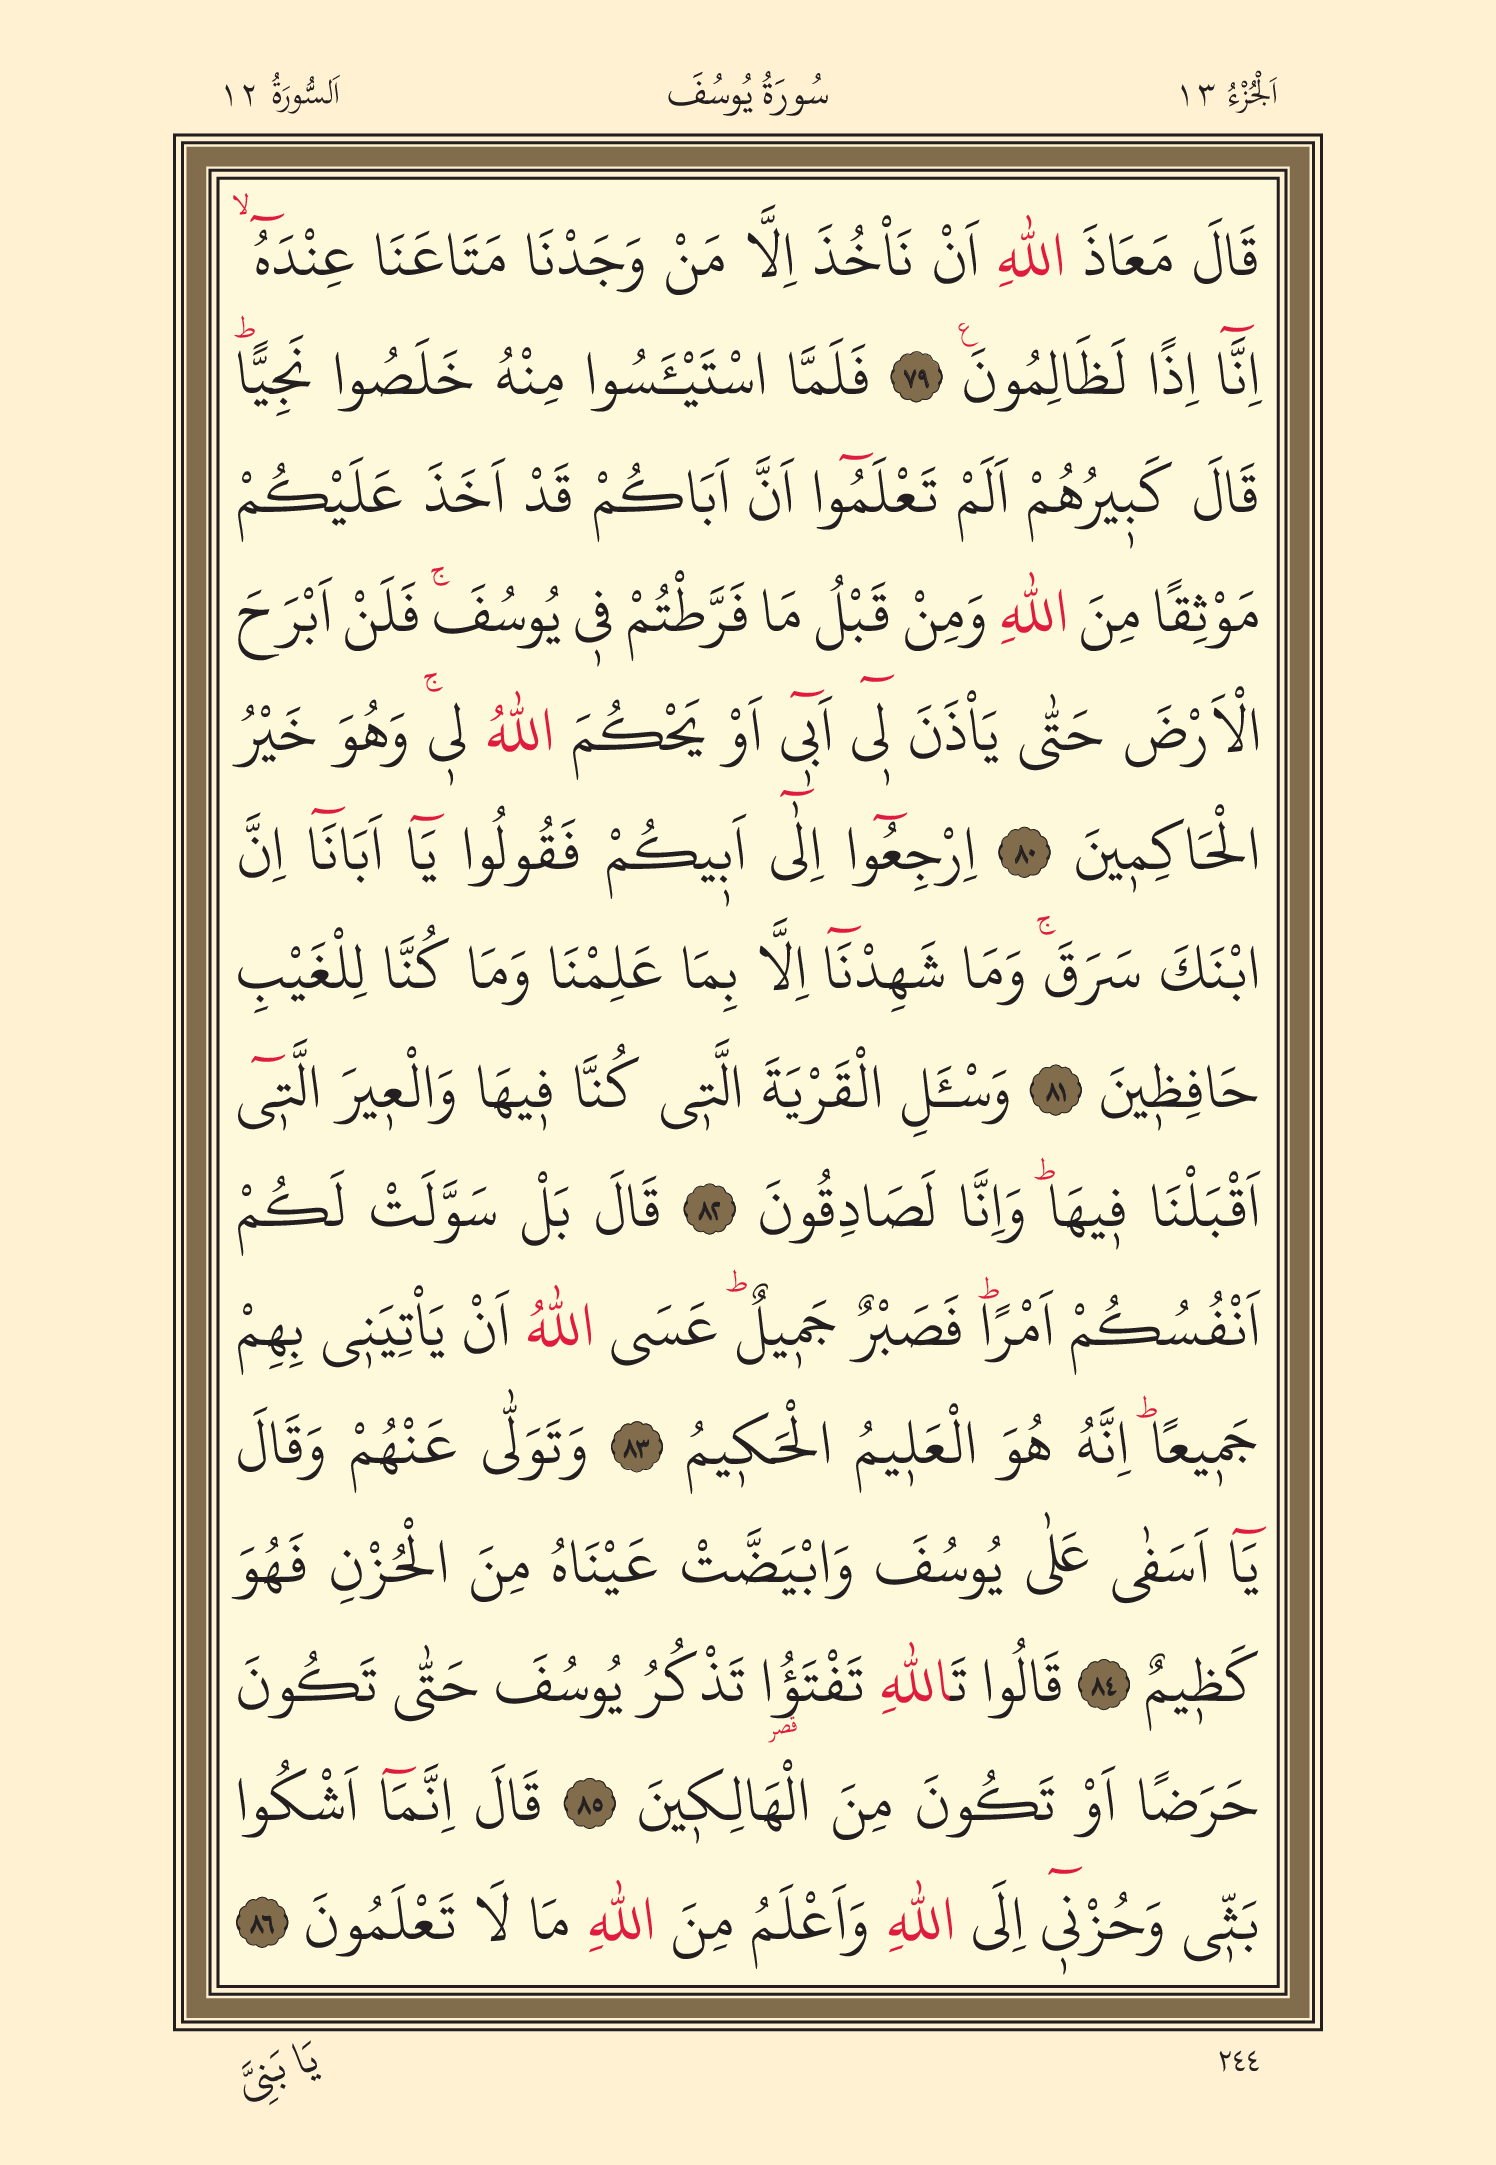 اَلْجُزْءُ ١٣
سُورَةُ يُوسُفَ
اَلسُّورَةُ ١٢
قَالَ مَعَاذَ اللّٰهِ اَنْ نَاْخُذَ اِلَّا مَنْ وَجَدْنَا مَتَاعَنَا عِنْدَهُٓ ۙ
اِنَّٓا اِذًا لَظَالِمُونَ ع ٧٩ فَلَمَّا اسْتَيْـَٔسُوا مِنْهُ خَلَصُوا نَجِيًّاۜ
قَالَ كَبٖيرُهُمْ اَلَمْ تَعْلَمُٓوا اَنَّ اَبَاكُمْ قَدْ اَخَذَ عَلَيْكُمْ
مَوْثِقًا مِنَ اللّٰهِ وَمِنْ قَبْلُ مَا فَرَّطْتُمْ فٖي يُوسُفَۚ فَلَنْ اَبْرَحَ
الْاَرْضَ حَتّٰى يَاْذَنَ لٖٓي اَبٖٓي اَوْ يَحْكُمَ اللّٰهُ لٖيۚ وَهُوَ خَيْرُ
الْحَاكِمٖينَ ٨٠ اِرْجِعُٓوا اِلٰٓى اَبٖيكُمْ فَقُولُوا يَٓا اَبَانَٓا اِنَّ
ابْنَكَ سَرَقَۚ وَمَا شَهِدْنَٓا اِلَّا بِمَا عَلِمْنَا وَمَا كُنَّا لِلْغَيْبِ
حَافِظٖينَ ٨١ وَسْـَٔلِ الْقَرْيَةَ الَّتٖى كُنَّا فٖيهَا وَالْعٖيرَ الَّتٖٓى
اَقْبَلْنَا فٖيهَاۜ وَاِنَّا لَصَادِقُونَ ٨٢ قَالَ بَلْ سَوَّلَتْ لَكُمْ
اَنْفُسُكُمْ اَمْرًاۜ فَصَبْرٌ جَمٖيلٌۜ عَسَى اللّٰهُ اَنْ يَاْتِيَنٖى بِهِمْ
جَمٖيعًاۜ اِنَّهُ هُوَ الْعَلٖيمُ الْحَكٖيمُ ٨٣ وَتَوَلّٰى عَنْهُمْ وَقَالَ
يَٓا اَسَفٰى عَلٰى يُوسُفَ وَابْيَضَّتْ عَيْنَاهُ مِنَ الْحُزْنِ فَهُوَ
كَظٖيمٌ ٨٤ قَالُوا تَاللّٰهِ تَفْتَؤُا تَذْكُرُ يُوسُفَ حَتّٰى تَكُونَ
قصر
حَرَضًا اَوْ تَكُونَ مِنَ الْهَالِكٖينَ ٨٥ قَالَ اِنَّمَٓا اَشْكُوا
بَثّٖى وَحُزْنٖٓى اِلَى اللّٰهِ وَاَعْلَمُ مِنَ اللّٰهِ مَا لَا تَعْلَمُونَ ٨٦
٢٤٤
يَا بَنِىَّ